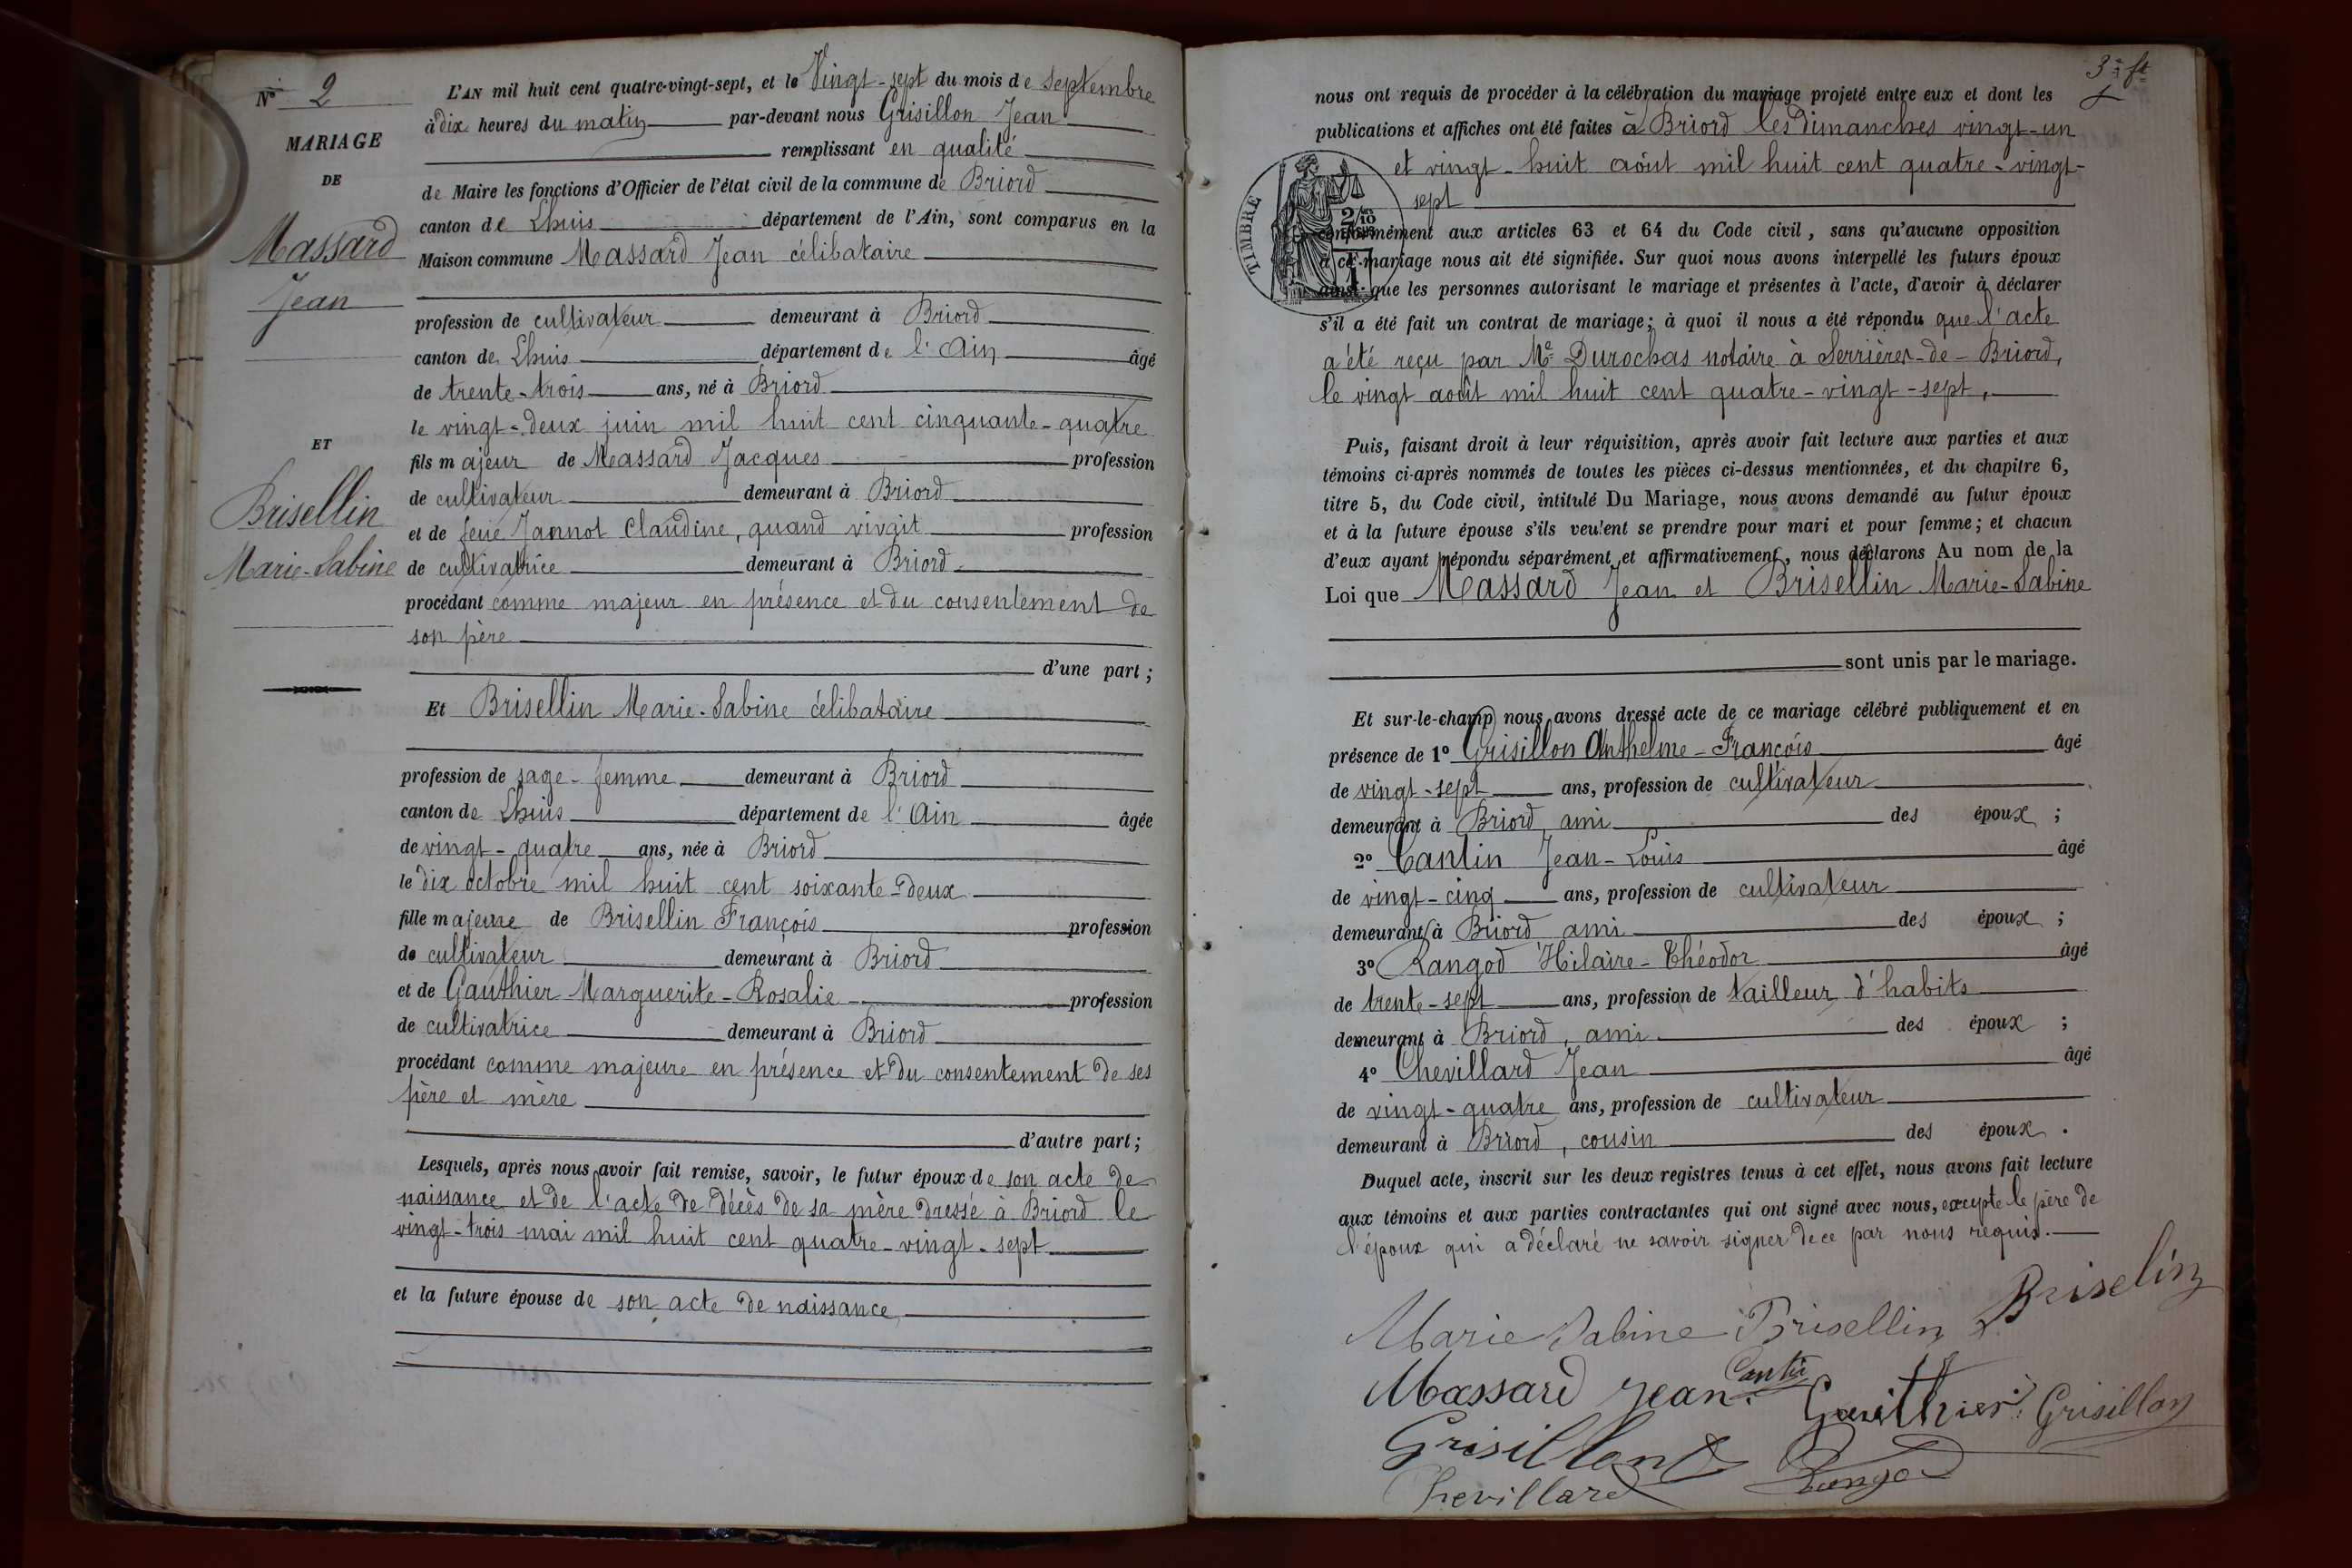 N° 2
MARIAGE
DE
Massard
Jean
ET
Brisellin
Marie-Sabine
L'AN mil huit cent quatre-vingt-sept, et le Vingt-sept du mois de septembre
à dix heures du matin par-devant nous Grisillon Jean
remplissant en qualité
de Maire les fonctions d'Officier de l'état civil de la commune de Briord
canton de Lhuis département de l'Ain, sont comparus en la
Maison commune Massard Jean célibataire
profession de cultivateur demeurant à Briord
canton de Lhuis département de l'Ain âgé
de trente-trois ans, né à Briord
le vingt-deux juin mil huit cent cinquante-quatre
fils majeur de Massard Jacques profession
de cultivateur demeurant à Briord
et de feue Jannot Claudine, quand vivait profession
de cultivatrice demeurant à Briord
procédant comme majeur en présence et du consentement de
son père
d'une part ;
Et Brisellin Marie-Sabine célibataire
profession de sage-femme demeurant à Briord
canton de Lhuis département de l'Ain âgée
de vingt-quatre ans, née à Briord
le dix octobre mil huit cent soixante-deux
fille majeure de Brisellin François profession
de cultivateur demeurant à Briord
et de Gauthier Marguerite-Rosalie profession
de cultivatrice demeurant à Briord
procédant comme majeure en présence et du consentement de ses
père et mère
d'autre part ;
Lesquels, après nous avoir fait remise, savoir, le futur époux de son acte de
naissance et de l'acte de décès de sa mère dressé à Briord le
vingt-trois mai mil huit cent quatre-vingt-sept
et la future épouse de son acte de naissance
3e ft
nous ont requis de procéder à la célébration du mariage projeté entre eux et dont les
publications et affiches ont été faites à Briord les dimanches vingt-un
et vingt-huit août mil huit cent quatre-vingt-
sept
TIMBRE
conformément aux articles 63 et 64 du Code civil, sans qu'aucune opposition
à ce mariage nous ait été signifiée. Sur quoi nous avons interpellé les futurs époux
ainsi que les personnes autorisant le mariage et présentes à l'acte, d'avoir à déclarer
s'il a été fait un contrat de mariage ; à quoi il nous a été répondu que l'acte
a été reçu par Me Durochas notaire à Serrières-de-Briord,
le vingt août mil huit cent quatre-vingt-sept,
Puis, faisant droit à leur réquisition, après avoir fait lecture aux parties et aux
témoins ci-après nommés de toutes les pièces ci-dessus mentionnées, et du chapitre 6,
titre 5, du Code civil, intitulé Du Mariage, nous avons demandé au futur époux
et à la future épouse s'ils veulent se prendre pour mari et pour femme ; et chacun
d'eux ayant répondu séparément et affirmativement, nous déclarons Au nom de la
Loi que Massard Jean et Brisellin Marie-Sabine
sont unis par le mariage.
Et sur-le-champ nous avons dressé acte de ce mariage célébré publiquement et en
présence de 1° Grisillon Anthelme-François âgé
de vingt-sept ans, profession de cultivateur
demeurant à Briord ami des époux ;
2° Cantin Jean-Louis âgé
de vingt-cinq ans, profession de cultivateur
demeurant à Briord ami des époux ;
3° Rangod Hilaire-Théodor âgé
de trente-sept ans, profession de tailleur d'habits
demeurant à Briord, ami des époux ;
4° Chevillard Jean âgé
de vingt-quatre ans, profession de cultivateur
demeurant à Briord, cousin des époux.
Duquel acte, inscrit sur les deux registres tenus à cet effet, nous avons fait lecture
aux témoins et aux parties contractantes qui ont signé avec nous, excepté le père de
l'époux qui a déclaré ne savoir signer de ce par nous requis.
Marie Sabine Brisellin Briselin
Massard Jean. Cantin Gauthier Grisillon
Grisillon
Chevillard Rangod